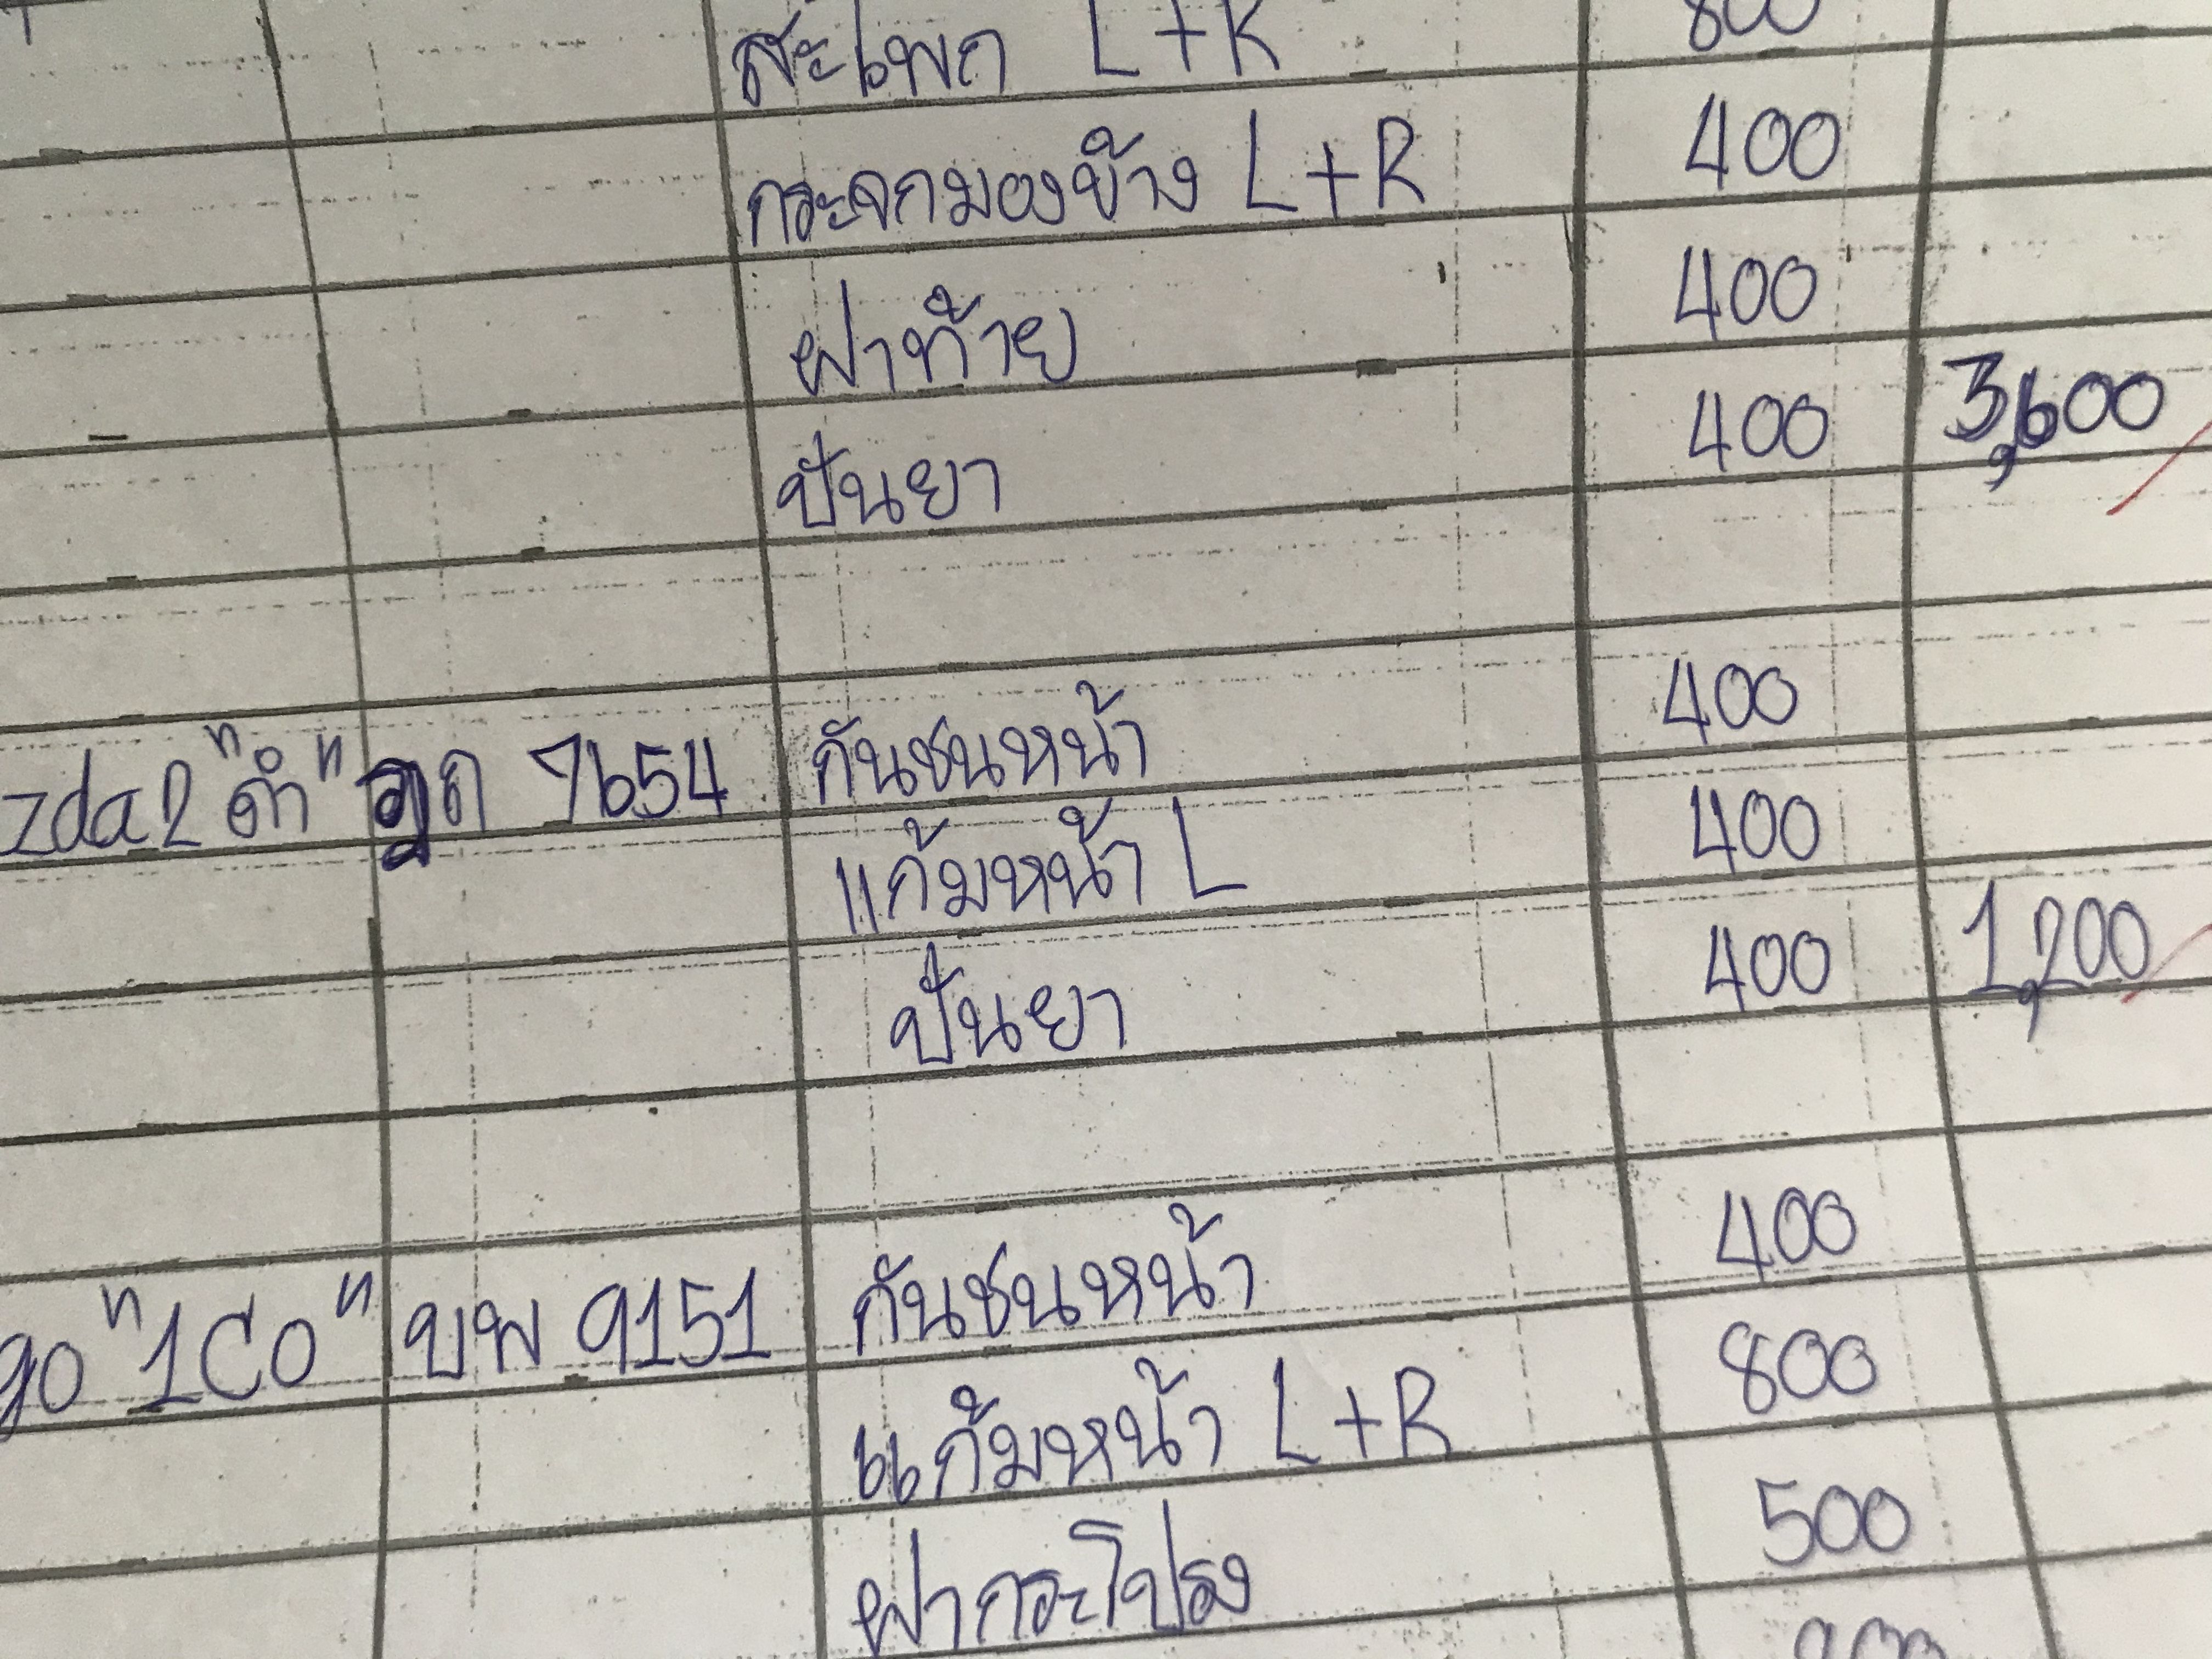 สะโพก L+R 800
กระจกมองข้าง L+R 400
ฝาท้าย 400
ปั่นยา 400 3,600
zda2 "ดำ" ฎถ 7654 กันชนหน้า 400
แก้มหน้า L 400
ปั่นยา 400 1,200
go "1C0" บพ 9151 กันชนหน้า 400
แก้มหน้า L+R 800
ฝากระโปรง 500